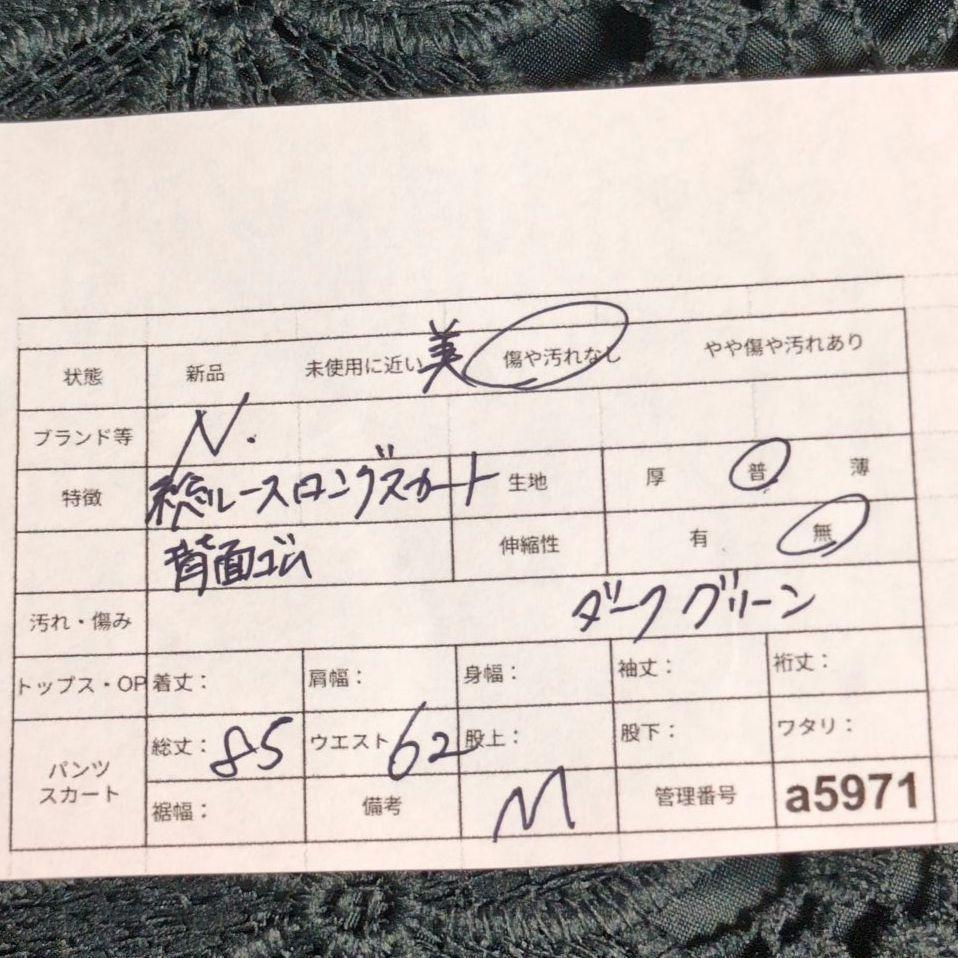 状態 新品 未使用に近い 美 傷や汚れなし やや傷や汚れあり
ブランド等 N.
特徴 総レースロングスカート 生地 厚 普 薄
背面ゴム 伸縮性 有 無
汚れ・傷み ダークグリーン
トップス・OP 着丈： 肩幅： 身幅： 袖丈： 裄丈：
パンツ スカート 総丈：85 ウエスト 62 股上： 股下： ワタリ：
裾幅： 備考 M 管理番号 a5971